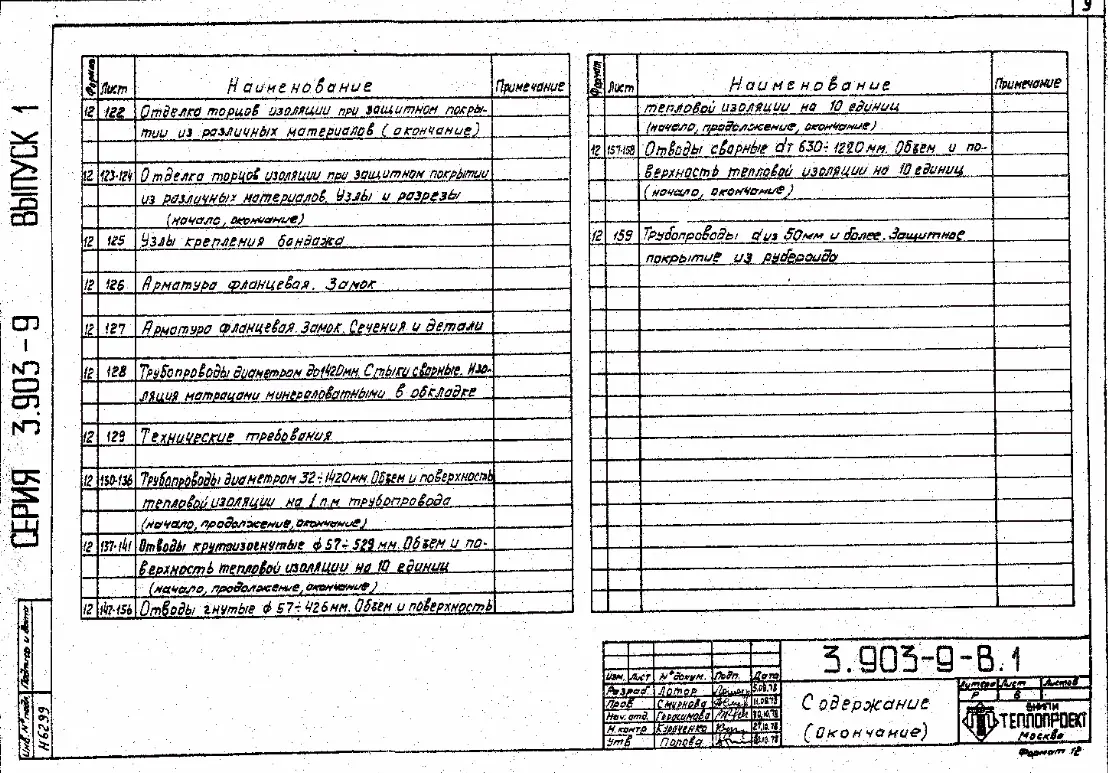 9
СЕРИЯ 3.903-9 ВЫПУСК 1
Формат Лист Наименование Примечание
12 122 Отделка торцов изоляции при защитном покры-
тии из различных материалов (окончание)
12 123-124 Отделка торцов изоляции при защитном покрытии
из различных материалов. Узлы и разрезы
(начало, окончание)
12 125 Узлы крепления бандажа
12 126 Арматура фланцевая. Замок
12 127 Арматура фланцевая. Замок. Сечения и детали
12 128 Трубопроводы диаметром до 1420мм. Стыки сварные. Изо-
ляция матрацами минераловатными в обкладке
12 129 Технические требования
12 130-136 Трубопроводы диаметром 32÷1420мм. Объем и поверхность
тепловой изоляции на 1 п.м трубопровода
(начало, продолжение, окончание)
12 137-141 Отводы крутоизогнутые ф 57÷529 мм. Объем и по-
верхность тепловой изоляции на 10 единиц
(начало, продолжение, окончание)
12 Отводы гнутые ф 57÷426мм. Объем и поверхность
Формат Лист Наименование Примечание
тепловой изоляции на 10 единиц
(начало, продолжение, окончание)
12 157-158 Отводы сварные dт 630÷1220 мм. Объем и по-
верхность тепловой изоляции на 10 единиц
(начало, окончание)
12 159 Трубопроводы dиз 50мм и более. Защитное
покрытие из рубероида
3.903-9-В.1
Изм. Лист N°докум. Подп. Дата
Разраб Лотор 5.09.78
Пров Смирнова
Нач. отд. Герасимова
Н контр Кузиченко
Утв Попова
Содержание
(окончание)
Литера Лист Листов
Р 6
ВНИПИ
ТЕПЛОПРОЕКТ
Москва
Формат 12
Инв.N°подл. Подпись и дата
Н6299